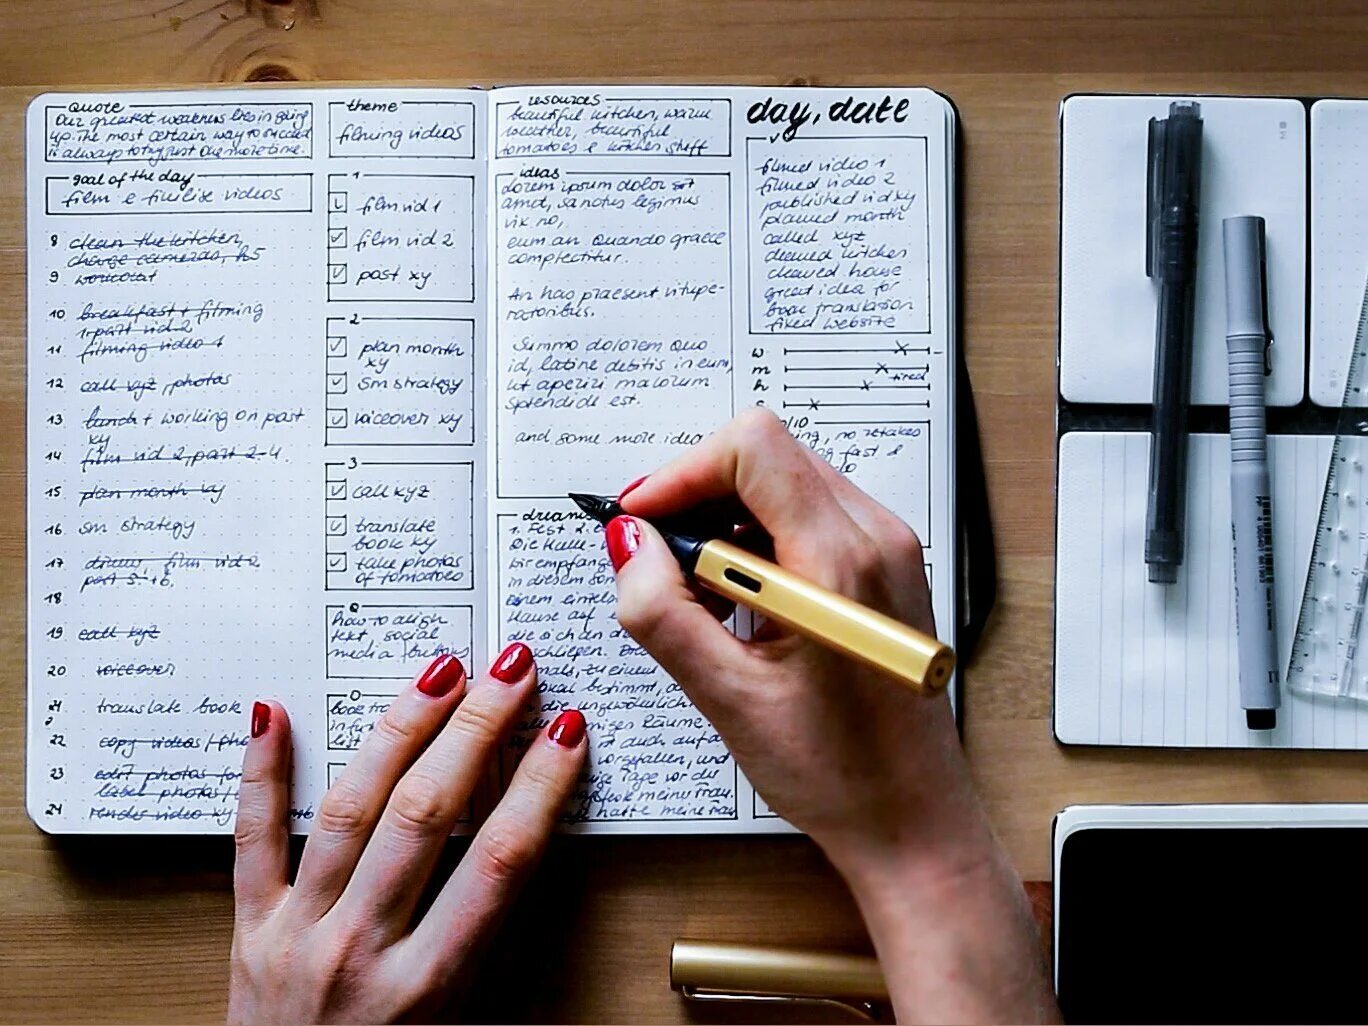 Quote
Our greatest weakness lies in giving
up. The most certain way to succeed
is always to try just one more time.
goal of the day
film e finilise videos
8 clean the kitchen,
charge cameras, h5
9 workout
10 breakfast + filming
1. part vid 2
11 filming video 1
12 call xyz, photos
13 lunch + working on post
xy
14 film vid 2, part 2-4.
15 plan month xy
16 sm strategy
17 film vid 2
part 5+6.
18
19 call xyz
20 voiceover
21 translate book
22 copy videos / pho
23 edit photos for
label photos /
24 render video xy
theme
filming videos
1
film vid 1
film vid 2
post xy
2
plan month
xy
sm strategy
voiceover xy
3
call xyz
translate
book xy
take photos
of tomatoes
Q
how to align
text, social
media buttons
O
book tra
list
resources
beautiful kitchen, warm
weather, beautiful
tomatoes e kitchen stuff
ideas
Lorem ipsum dolor sit
amet, sanctus legimus
vix no,
eum an quando graece
complectitur.
An has praesent vitupe-
ratoribus.
Summo dolorem quo
id, latine debitis in eum,
ut aperiri malorum
splendide est.
and some more idea
dreams
1. Fest 2.
Die Halle
wir empfange
in diesem
einem einzel
Hause auf
die sich an
schliessen.
mals, zu einem
bestimmt,
die ungewöhnlich
Räume.
auch auf
vorgefallen, und
Tage vor der
meine Frau.
hatte meine Frau
day, date
filmed video 1
filmed video 2
published vid xy
planned month
called xyz
cleaned kitchen
cleaned house
great idea for
book translation
fixed website
w
m
h tired
s
no retakes
fast e